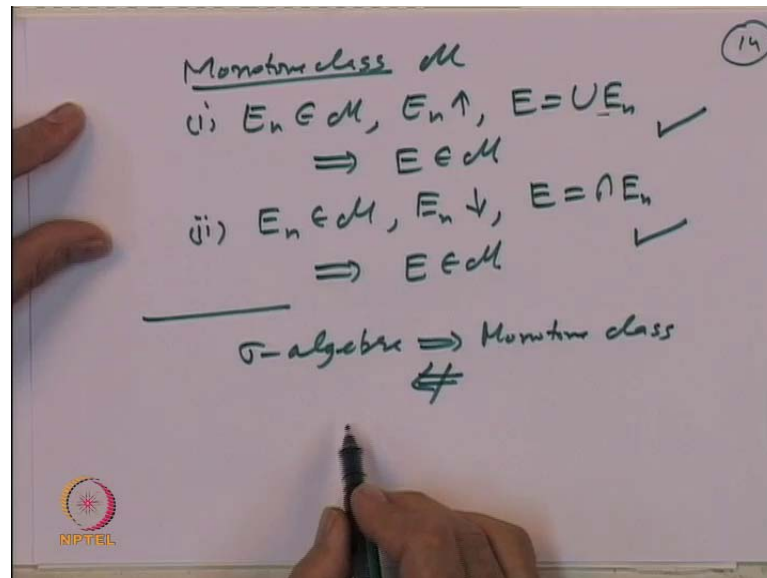 14
Monotone class ℳ
(i) Eₙ ∈ ℳ, Eₙ ↑, E = ∪ Eₙ ✓
⟹ E ∈ ℳ
(ii) Eₙ ∈ ℳ, Eₙ ↓, E = ∩ Eₙ ✓
⟹ E ∈ ℳ
σ-algebra ⟹ Monotone class
⇍
NPTEL